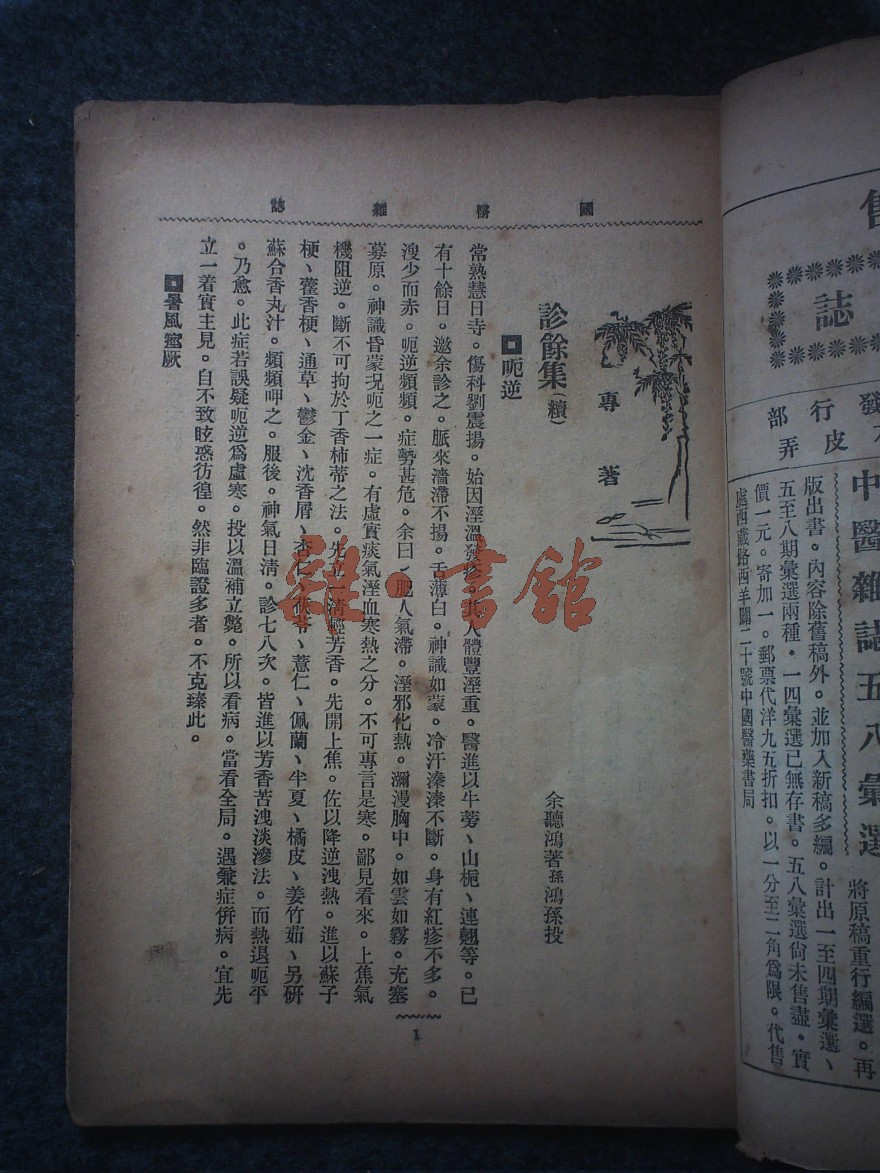 誌
行部
皮弄
中醫雜誌五八彙選
將原稿重行編選。再
版出書。內容除舊稿外。並加入新稿多編。計出一至四期彙選、
五至八期彙選兩種。一四彙選已無存書。五八彙選尙未售盡。實
價一元。寄加一。郵票代洋九五折扣。以一分至二角爲限。代售
處西藏路西羊關二十號中國醫藥書局
國醫雜誌
專著
診餘集(續)
余聽鴻著孫鴻孫投
呃逆
常熟慧日寺。傷科劉震揚。始因溼溫發疹。其人體豐溼重。醫進以牛蒡、山梔、連翹等。已
有十餘日。邀余診之。脈來濇滯不揚。舌薄白。神識如蒙。冷汗溱溱不斷。身有紅疹不多。
溲少而赤。呃逆頻頻。症勢甚危。余曰、肥人氣滯。溼邪化熱。瀰漫胸中。如雲如霧。充塞
募原。神識昏蒙況呃之一症。有虛實痰氣溼血寒熱之分。不可專言是寒。鄙見看來。上焦氣
機阻逆。斷不可拘於丁香柿蒂之法。先立一淸輕芳香。先開上焦。佐以降逆洩熱。進以蘇子
梗、藿香梗、通草、鬱金、沈香屑、杏仁、茯苓、薏仁、佩蘭、半夏、橘皮、姜竹茹、另硏
蘇合香丸汁。頻頻呷之。服後。神氣日淸。診七八次。皆進以芳香苦洩淡滲法。而熱退呃平
。乃愈。此症若誤疑呃逆爲虛寒。投以溫補立斃。所以看病。當看全局。遇兼症併病。宜先
立一着實主見。自不致眩惑彷徨。然非臨證多者。不克臻此。
暑風痙厥
1
雜·書館